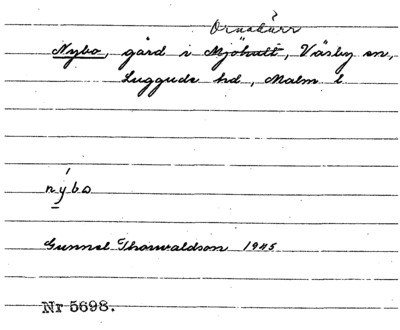 Ornakärr
Nybo, gård i Mjöhult, Väsby sn,
Luggude hd, Malm. l.
nýbo
Gunnel Thorwaldson 1945
Nr 5698.